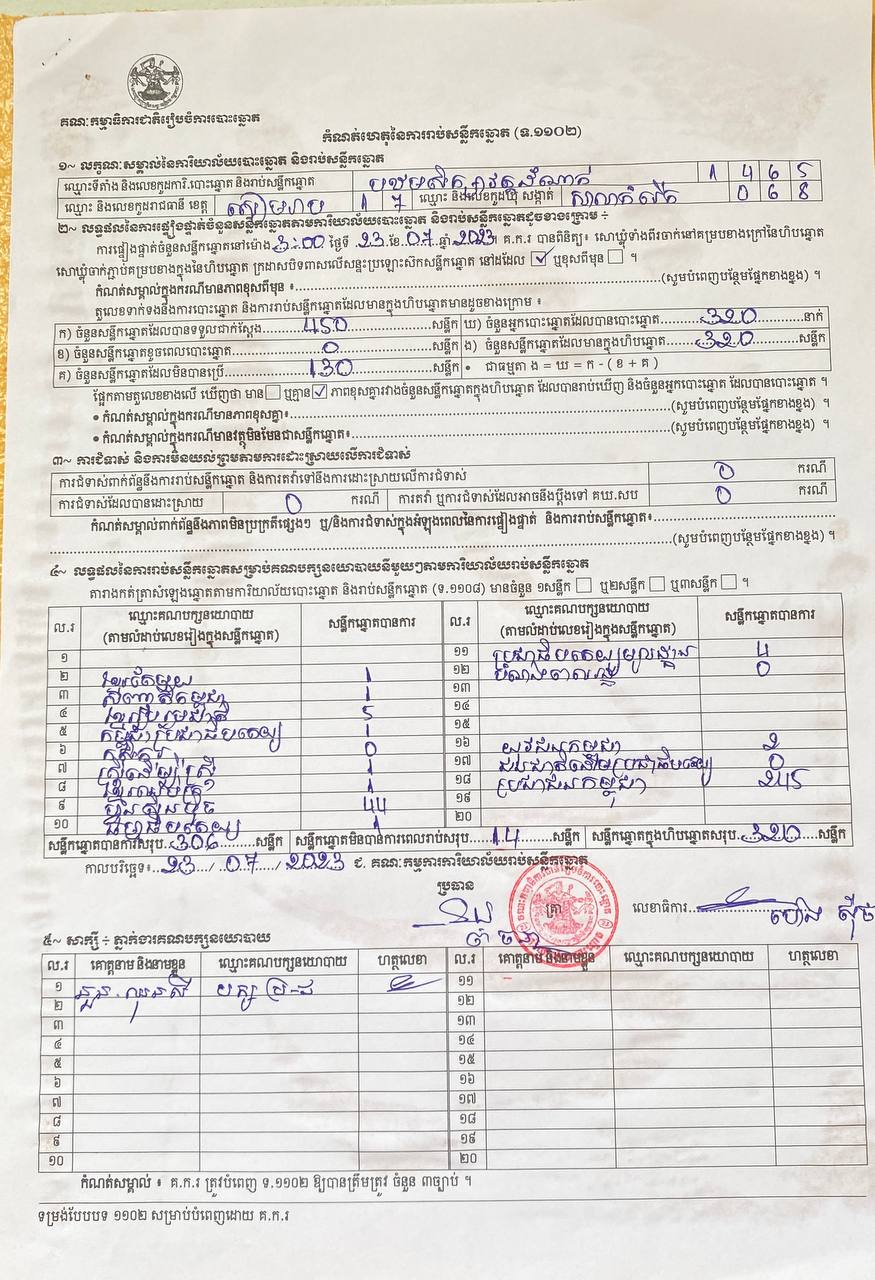 គណៈកម្មាធិការជាតិរៀបចំការបោះឆ្នោត
កំណត់ហេតុនៃការរាប់សន្លឹកឆ្នោត (ទ.១១០២)
១~ លក្ខណៈសម្គាល់នៃការិយាល័យបោះឆ្នោត និងរាប់សន្លឹកឆ្នោត
ឈ្មោះទីតាំង និងលេខកូដការិ.បោះឆ្នោត និងរាប់សន្លឹកឆ្នោត 1 4 6 5
ឈ្មោះ និងលេខកូដរាជធានី ខេត្ត សៀមរាប 1 7 ឈ្មោះ និងលេខកូដឃុំ សង្កាត់ សាលាកំរើក 0 6 8
២~ លទ្ធផលនៃការផ្ទៀងផ្ទាត់ចំនួនសន្លឹកឆ្នោតតាមការិយាល័យបោះឆ្នោត និងរាប់សន្លឹកឆ្នោតដូចខាងក្រោម ÷
ការផ្ទៀងផ្ទាត់ចំនួនសន្លឹកឆ្នោតនៅម៉ោង 3:00 ថ្ងៃទី 23 ខែ 07 ឆ្នាំ 2023 គ.ក.រ បានពិនិត្យ៖ សោឃ្លុំទាំងពីរចាក់នៅគម្របខាងក្រៅនៃហិបឆ្នោត
សោឃ្លុំចាក់ភ្ជាប់គម្របខាងក្នុងនៃហិបឆ្នោត ក្រដាសបិទពាសលើសន្ទះប្រឡោះសិកសន្លឹកឆ្នោត នៅដដែល ☑ ឬខុសពីមុន ☐ ។
កំណត់សម្គាល់ក្នុងករណីមានភាពខុសពីមុន ៖ (សូមបំពេញបន្ថែមផ្នែកខាងខ្នង) ។
តួលេខទាក់ទងនឹងការបោះឆ្នោត និងការរាប់សន្លឹកឆ្នោតដែលមានក្នុងហិបឆ្នោតមានដូចខាងក្រោម ៖
ក) ចំនួនសន្លឹកឆ្នោតដែលបានទទួលជាក់ស្ដែង 450 សន្លឹក ឃ) ចំនួនអ្នកបោះឆ្នោតដែលបានបោះឆ្នោត 320 នាក់
ខ) ចំនួនសន្លឹកឆ្នោតខូចពេលបោះឆ្នោត 0 សន្លឹក ង) ចំនួនសន្លឹកឆ្នោតដែលមានក្នុងហិបឆ្នោត 320 សន្លឹក
គ) ចំនួនសន្លឹកឆ្នោតដែលមិនបានប្រើ 130 សន្លឹក • ជាធម្មតា ង = ឃ = ក - ( ខ + គ )
ផ្អែកតាមតួលេខខាងលើ ឃើញថា មាន ☐ ឬគ្មាន ☑ ភាពខុសគ្នារវាងចំនួនសន្លឹកឆ្នោតក្នុងហិបឆ្នោត ដែលបានរាប់ឃើញ និងចំនួនអ្នកបោះឆ្នោត ដែលបានបោះឆ្នោត ។
• កំណត់សម្គាល់ក្នុងករណីមានភាពខុសគ្នា៖ (សូមបំពេញបន្ថែមផ្នែកខាងខ្នង) ។
• កំណត់សម្គាល់ក្នុងករណីមានវត្ថុមិនមែនជាសន្លឹកឆ្នោត៖ (សូមបំពេញបន្ថែមផ្នែកខាងខ្នង) ។
៣~ ការជំទាស់ និងការមិនយល់ព្រមតាមការដោះស្រាយលើការជំទាស់
ការជំទាស់ពាក់ព័ន្ធនឹងការរាប់សន្លឹកឆ្នោត និងការតវ៉ាទៅនឹងការដោះស្រាយលើការជំទាស់ 0 ករណី
ការជំទាស់ដែលបានដោះស្រាយ 0 ករណី ការតវ៉ា ឬការជំទាស់ដែលអាចនឹងប្ដឹងទៅ គឃ.សប 0 ករណី
កំណត់សម្គាល់ពាក់ព័ន្ធនឹងភាពមិនប្រក្រតីផ្សេងៗ ឬ/និងការជំទាស់ក្នុងអំឡុងពេលនៃការផ្ទៀងផ្ទាត់ និងការរាប់សន្លឹកឆ្នោត៖
(សូមបំពេញបន្ថែមផ្នែកខាងខ្នង) ។
៤~ លទ្ធផលនៃការរាប់សន្លឹកឆ្នោតសម្រាប់គណបក្សនយោបាយនីមួយៗតាមការិយាល័យរាប់សន្លឹកឆ្នោត
តារាងកត់ត្រាសំឡេងឆ្នោតតាមការិយាល័យបោះឆ្នោត និងរាប់សន្លឹកឆ្នោត (ទ.១១០៨) មានចំនួន ១សន្លឹក ☐ ឬ២សន្លឹក ☐ ឬ៣សន្លឹក ☐ ។
ល.រ ឈ្មោះគណបក្សនយោបាយ (តាមលំដាប់លេខរៀងក្នុងសន្លឹកឆ្នោត) សន្លឹកឆ្នោតបានការ ល.រ ឈ្មោះគណបក្សនយោបាយ (តាមលំដាប់លេខរៀងក្នុងសន្លឹកឆ្នោត) សន្លឹកឆ្នោតបានការ
១ ១១ ប្រជាធិបតេយ្យមូលដ្ឋាន 4
២ ខ្មែរតែមួយ 1 ១២ 0
៣ 1 ១៣
៤ 5 ១៤
៥ 1 ១៥
៦ កសិករ 0 ១៦ យុវជនកម្ពុជា 2
៧ ស្ត្រីដើម្បីស្ត្រី 1 ១៧ 0
៨ 1 ១៨ ប្រជាជនកម្ពុជា 245
៩ ហ៊្វុនស៊ិនប៉ិច 44 ១៩
១០ ធម្មាធិបតេយ្យ 1 ២០
សន្លឹកឆ្នោតបានការសរុប 306 សន្លឹក សន្លឹកឆ្នោតមិនបានការពេលរាប់សរុប 14 សន្លឹក សន្លឹកឆ្នោតក្នុងហិបឆ្នោតសរុប 320 សន្លឹក
កាលបរិច្ឆេទ៖ 23 / 07 / 2023 ជ. គណៈកម្មការការិយាល័យរាប់សន្លឹកឆ្នោត
ប្រធាន
ត្រា លេខាធិការ
៥~ សាក្សី ÷ ភ្នាក់ងារគណបក្សនយោបាយ
ល.រ គោត្តនាម និងនាមខ្លួន ឈ្មោះគណបក្សនយោបាយ ហត្ថលេខា ល.រ គោត្តនាម និងនាមខ្លួន ឈ្មោះគណបក្សនយោបាយ ហត្ថលេខា
១ បក្ស ប្រ-ជ ១១
២ ១២
៣ ១៣
៤ ១៤
៥ ១៥
៦ ១៦
៧ ១៧
៨ ១៨
៩ ១៩
១០ ២០
កំណត់សម្គាល់ ៖ គ.ក.រ ត្រូវបំពេញ ទ.១១០២ ឱ្យបានត្រឹមត្រូវ ចំនួន ៣ច្បាប់ ។
ទម្រង់បែបបទ ១១០២ សម្រាប់បំពេញដោយ គ.ក.រ